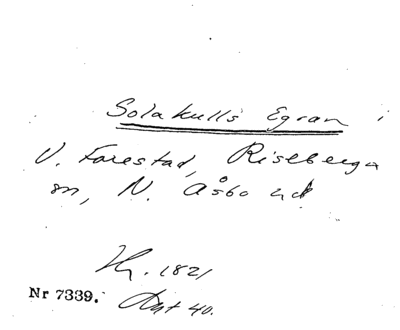 Solakulls Egran i
V. Forestad, Riseberga
sn, N. Åsbo hd
1821
Nr 7339. Akt 40.